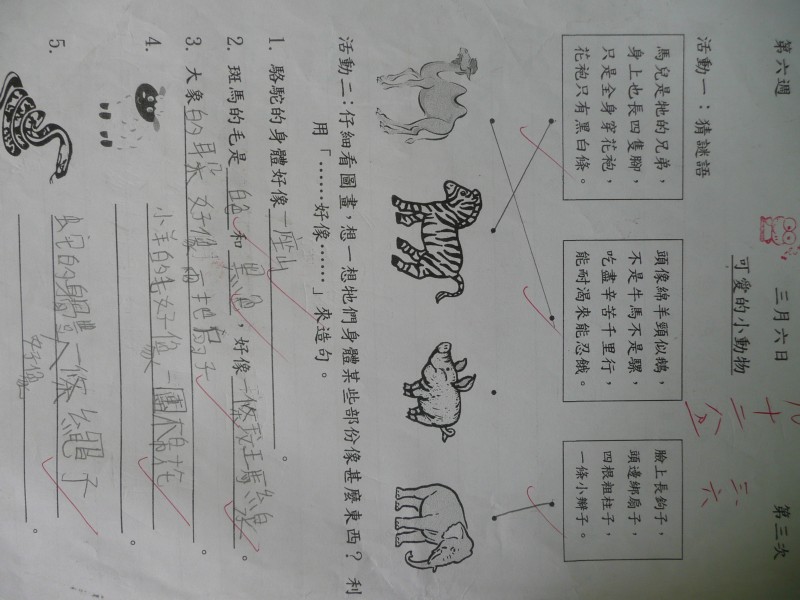 第六週 三月六日 第三次
可愛的小動物
活動一：猜謎語
馬兒是牠的兄弟，
身上也長四隻腳，
只是全身穿花袍，
花袍只有黑白條。
頭像綿羊頸似鵝，
不是牛馬不是騾，
吃盡辛苦千里行，
能耐渴來能忍餓。
臉上長鉤子，
頭邊綁扇子，
四根粗柱子，
一條小辮子。
活動二：仔細看圖畫，想一想牠們身體某些部份像甚麼東西？利
用「……好像……」來造句。
1. 駱駝的身體好像一座山。
2. 斑馬的毛是白色和黑色，好像一條斑馬線。
3. 大象的耳朵好像兩把扇子。
4. 小羊的毛好像一團棉花。
5. 蛇的身體好像一條繩子。